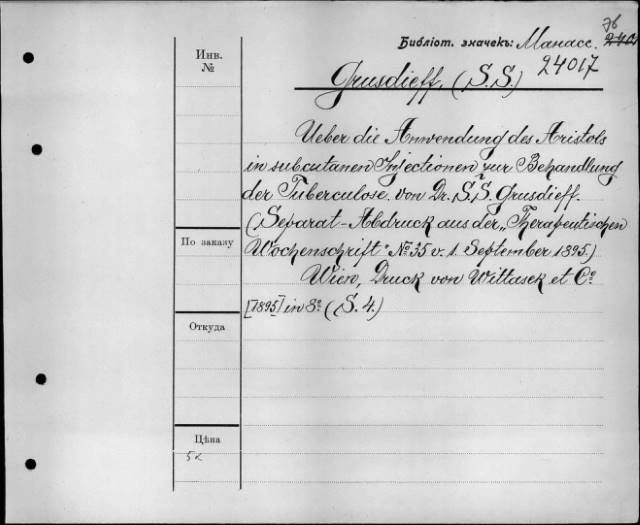 76
Библіот. значекъ: Манасс.
24017
Инв.
№
Grusdieff, (S.S.)
Ueber die Anwendung des Aristols
in subcutanen Injectionen zur Behandlung
der Tuberculose. von Dr. S.S. Grusdieff.
(Separat-Abdruck aus der „Therapeutischen
Wochenschrift" № 35 v. 1. September 1895.)
Wien, Druck von Wittasek et Cº
[1895] in 8º (S. 4.)
По заказу
Откуда
Цѣна
5к